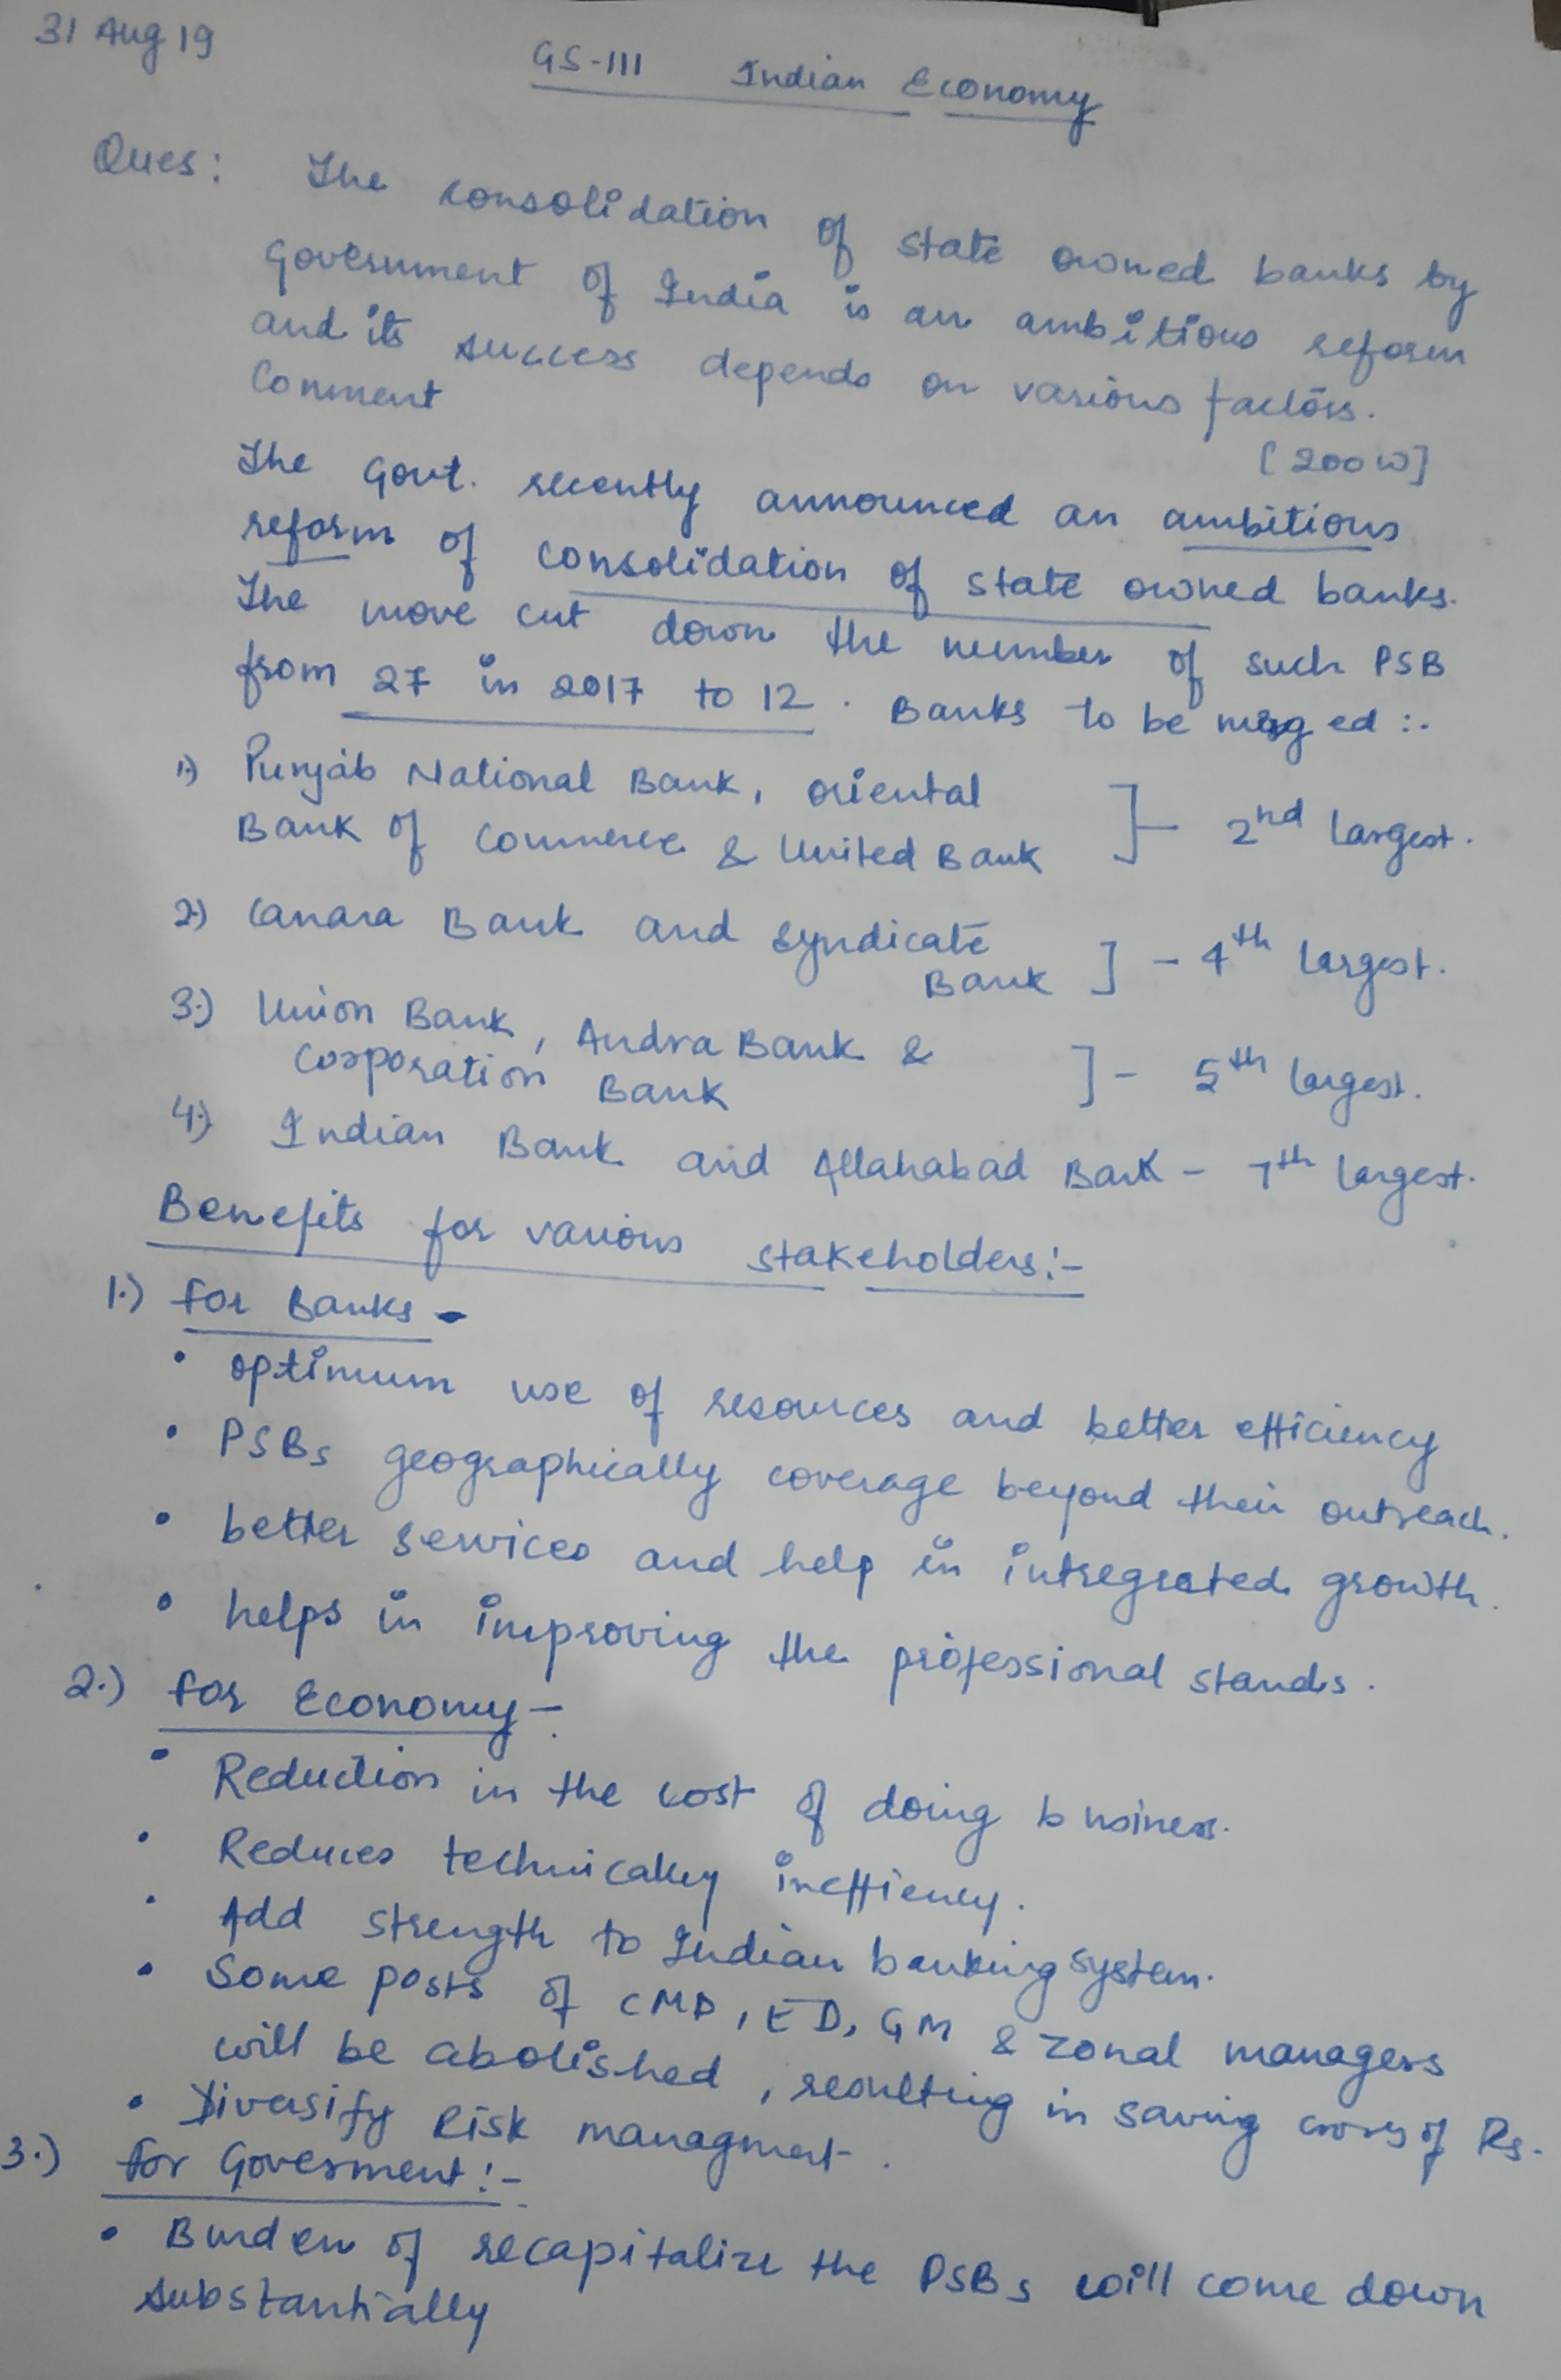 31 Aug 19
GS-III Indian Economy
Ques: The consolidation of state owned banks by
Government of India is an ambitious reform
and its success depends on various factors.
Comment
[200W]
The Govt. recently announced an ambitious
reform of consolidation of state owned banks.
The move cut down the number of such PSB
from 27 in 2017 to 12. Banks to be merged :-
1.) Punjab National Bank, Oriental
Bank of Commerce & United Bank ]- 2nd largest.
2.) Canara Bank and Syndicate
Bank ] - 4th largest.
3.) Union Bank, Andra Bank &
Corporation Bank ] - 5th largest.
4.) Indian Bank and Allahabad Bank - 7th largest.
Benefits for various stakeholders:-
1.) For Banks -
• optimum use of resources and better efficiency
• PSBs geographically coverage beyond their outreach.
• better services and help in intregrated growth.
• helps in improving the professional stands.
2.) For Economy -
• Reduction in the cost of doing business.
• Reduces technically ineffiency.
• Add strength to Indian banking system.
• Some posts of CMD, ED, GM & Zonal managers
will be abolished, resulting in saving crores of Rs.
• Diversify Risk managment.
3.) For Goverment:-
• Burden of recapitalize the PSBs will come down
substantially